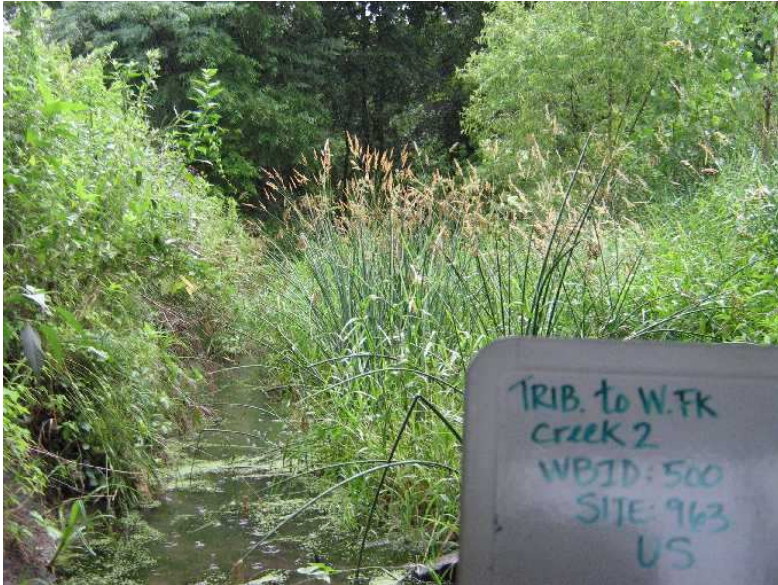 TRIB. to W.FK
Creek 2
WBID: 500
SITE: 963
US